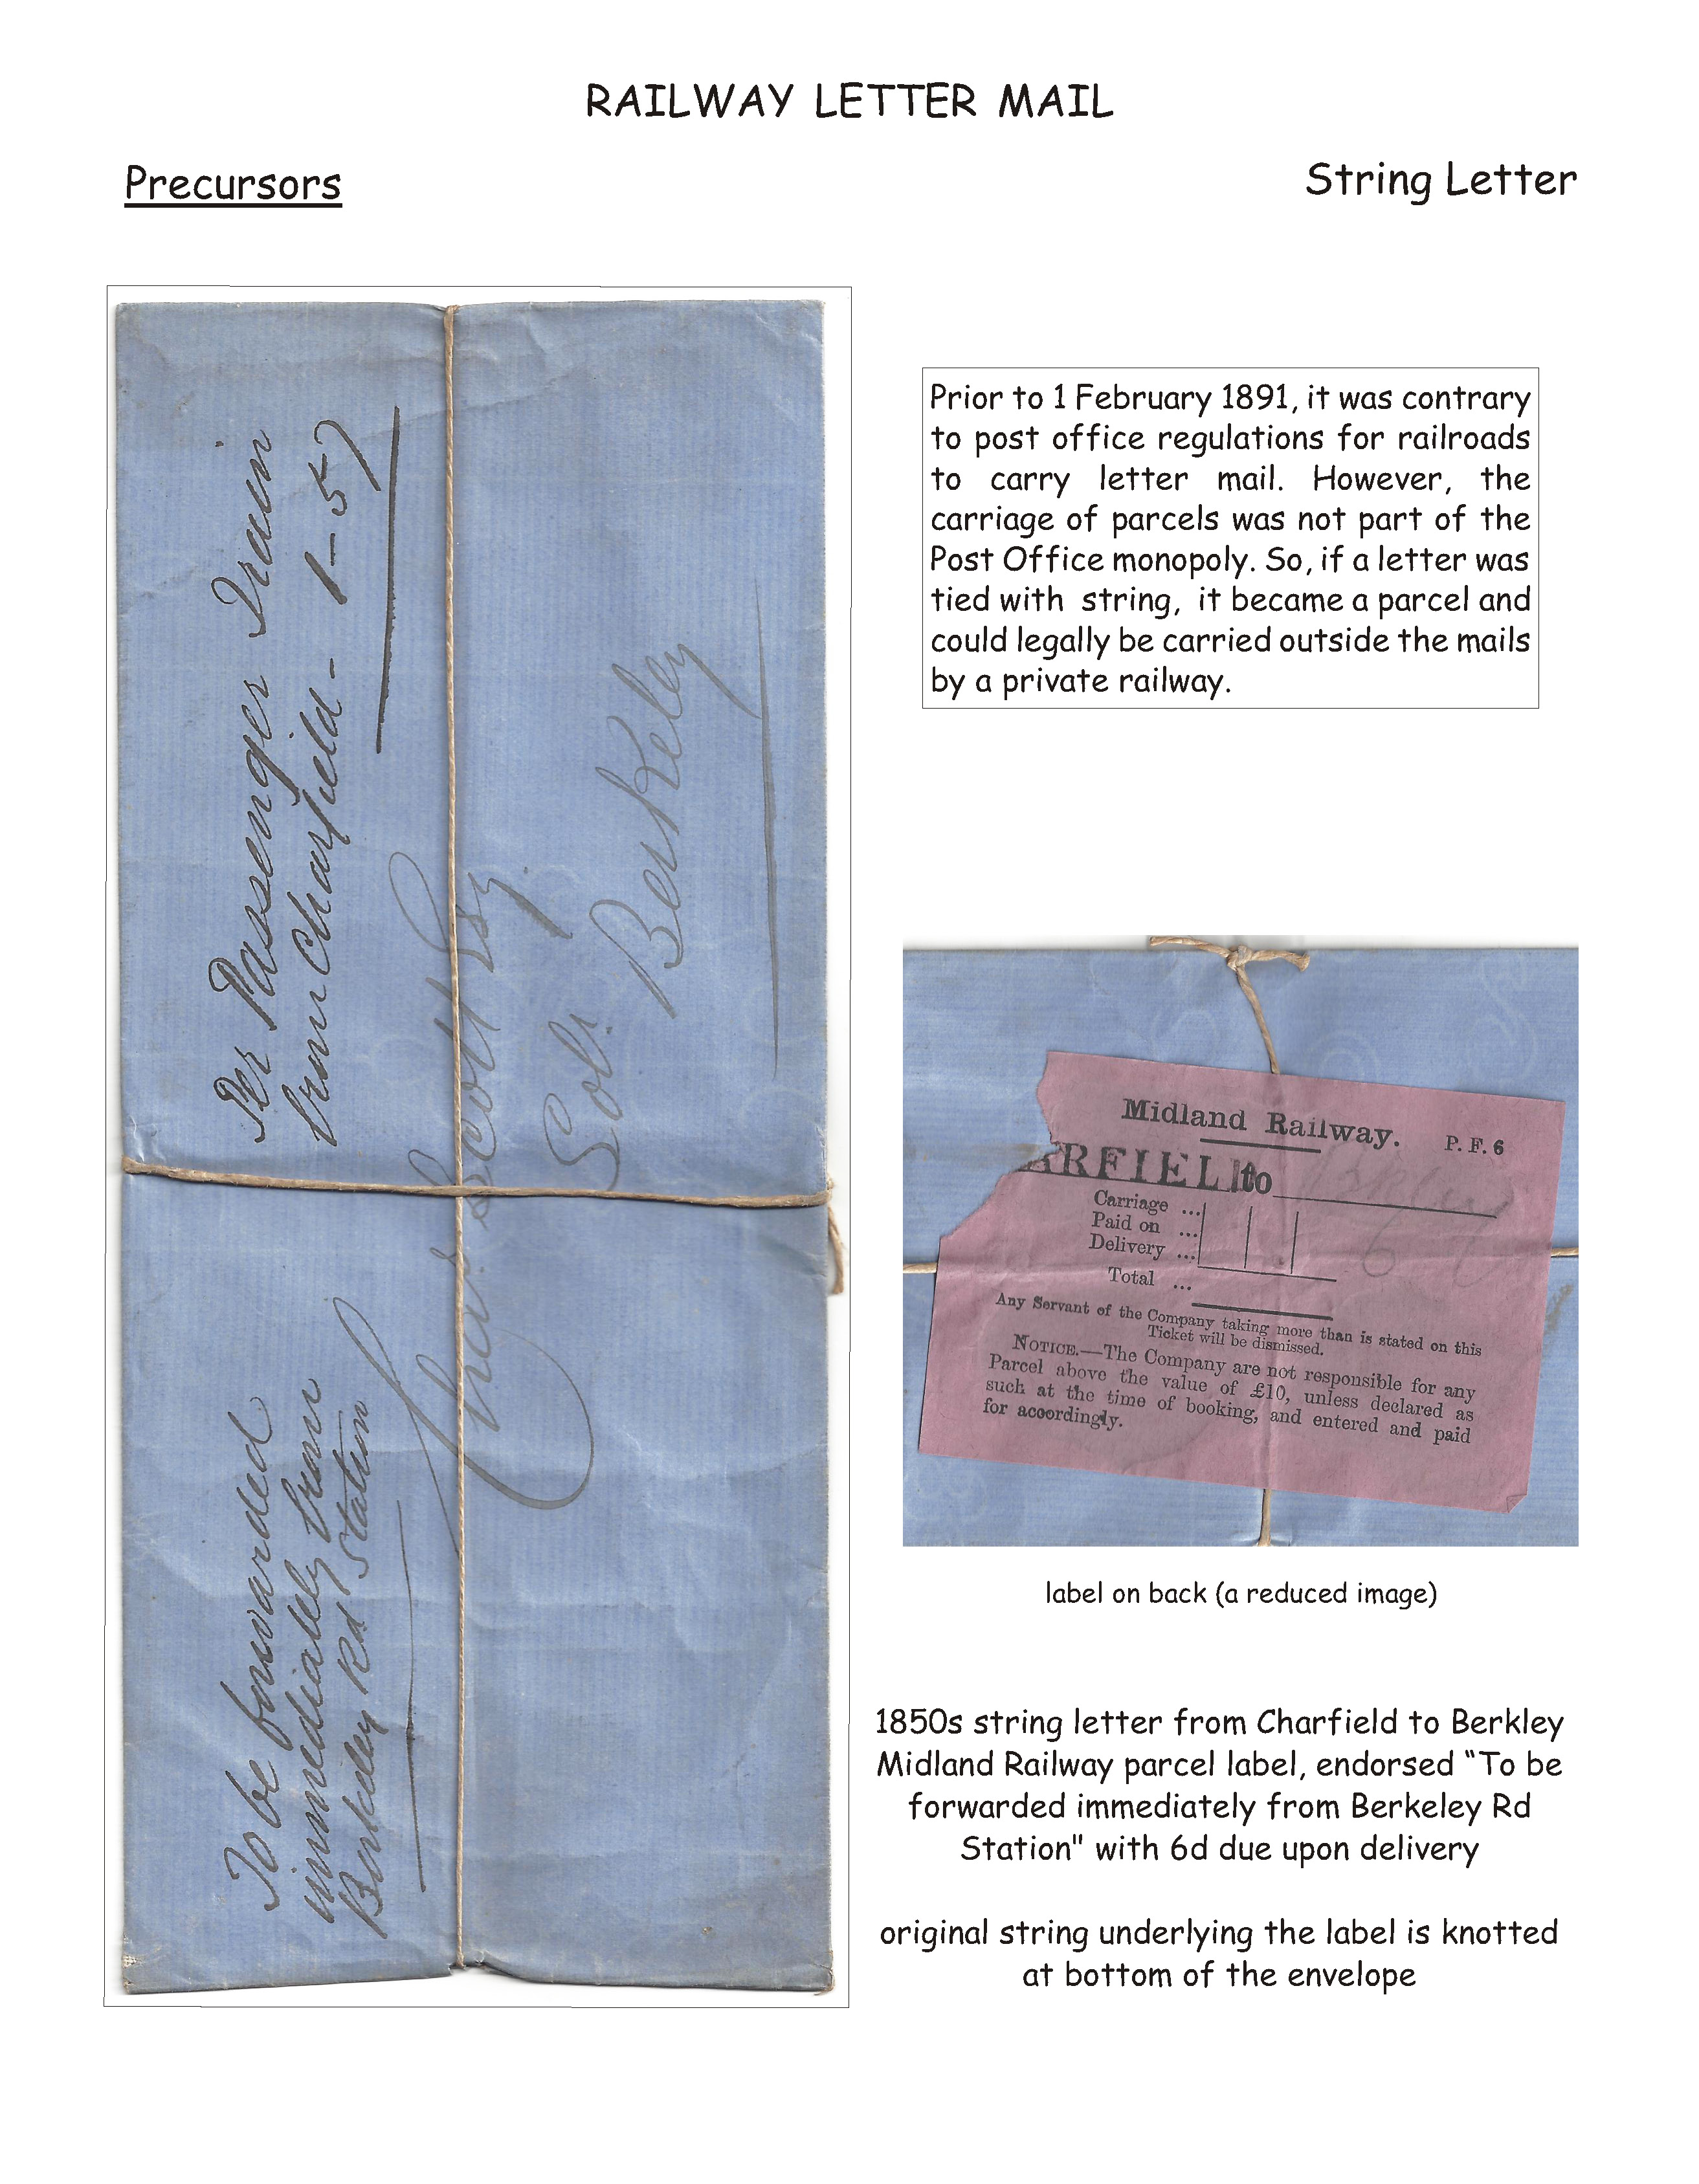 RAILWAY LETTER MAIL
Precursors
String Letter
To be forwarded
immediately from
Berkeley Rd Station
Per Passenger Train
from Charfield - 1-57
Chas Scott Esq.
Solr.
Berkeley
Prior to 1 February 1891, it was contrary
to post office regulations for railroads
to carry letter mail. However, the
carriage of parcels was not part of the
Post Office monopoly. So, if a letter was
tied with string, it became a parcel and
could legally be carried outside the mails
by a private railway.
Midland Railway. P. F. 6
ARFIEL to
Carriage ...
Paid on ...
Delivery ...
Total ...
Any Servant of the Company taking more than is stated on this
Ticket will be dismissed.
NOTICE.—The Company are not responsible for any
Parcel above the value of £10, unless declared as
such at the time of booking, and entered and paid
for accordingly.
label on back (a reduced image)
1850s string letter from Charfield to Berkley
Midland Railway parcel label, endorsed “To be
forwarded immediately from Berkeley Rd
Station" with 6d due upon delivery
original string underlying the label is knotted
at bottom of the envelope